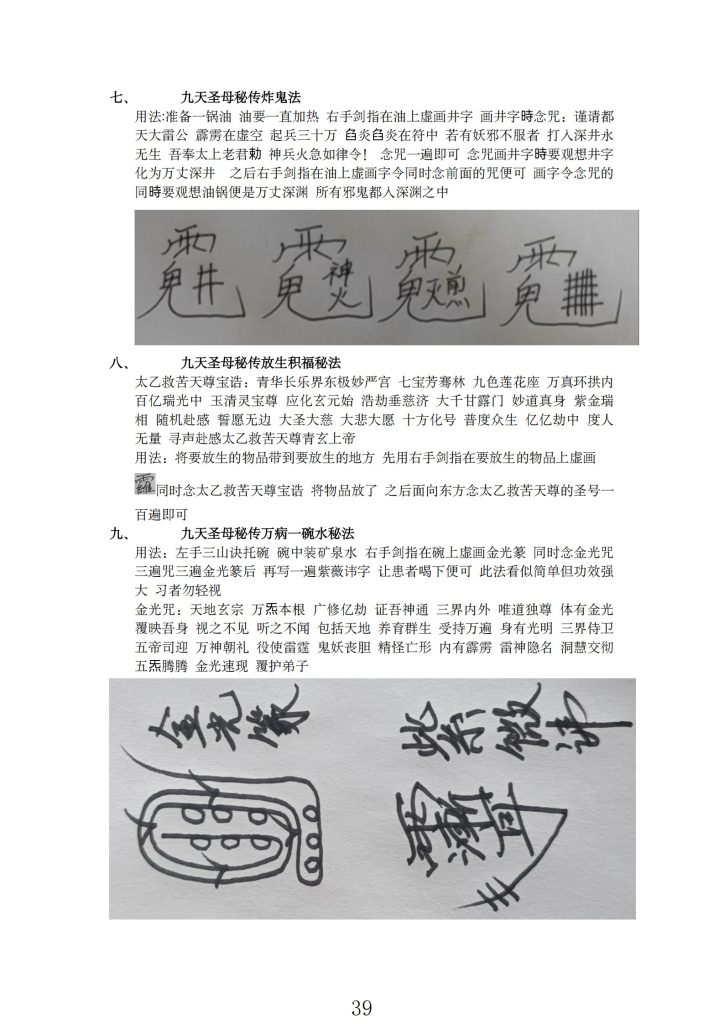 七、 九天圣母秘传炸鬼法
用法:准备一锅油 油要一直加热 右手剑指在油上虚画井字 画井字時念咒：谨请都
天大雷公 霹雳在虚空 起兵三十万 臽炎臽炎在符中 若有妖邪不服者 打入深井永
无生 吾奉太上老君勅 神兵火急如律令！ 念咒一遍即可 念咒画井字時要观想井字
化为万丈深井 之后右手剑指在油上虚画字令同时念前面的咒便可 画字令念咒的
同時要观想油锅便是万丈深渊 所有邪鬼都入深渊之中
八、 九天圣母秘传放生积福秘法
太乙救苦天尊宝诰：青华长乐界东极妙严宫 七宝芳骞林 九色莲花座 万真环拱内
百亿瑞光中 玉清灵宝尊 应化玄元始 浩劫垂慈济 大千甘露门 妙道真身 紫金瑞
相 随机赴感 誓愿无边 大圣大慈 大悲大愿 十方化号 普度众生 亿亿劫中 度人
无量 寻声赴感太乙救苦天尊青玄上帝
用法：将要放生的物品带到要放生的地方 先用右手剑指在要放生的物品上虚画
同时念太乙救苦天尊宝诰 将物品放了 之后面向东方念太乙救苦天尊的圣号一
百遍即可
九、 九天圣母秘传万病一碗水秘法
用法：左手三山诀托碗 碗中装矿泉水 右手剑指在碗上虚画金光篆 同时念金光咒
三遍咒三遍金光篆后 再写一遍紫薇讳字 让患者喝下便可 此法看似简单但功效强
大 习者勿轻视
金光咒：天地玄宗 万炁本根 广修亿劫 证吾神通 三界内外 唯道独尊 体有金光
覆映吾身 视之不见 听之不闻 包括天地 养育群生 受持万遍 身有光明 三界侍卫
五帝司迎 万神朝礼 役使雷霆 鬼妖丧胆 精怪亡形 内有霹雳 雷神隐名 洞慧交彻
五炁腾腾 金光速现 覆护弟子
金光篆
紫微讳
39